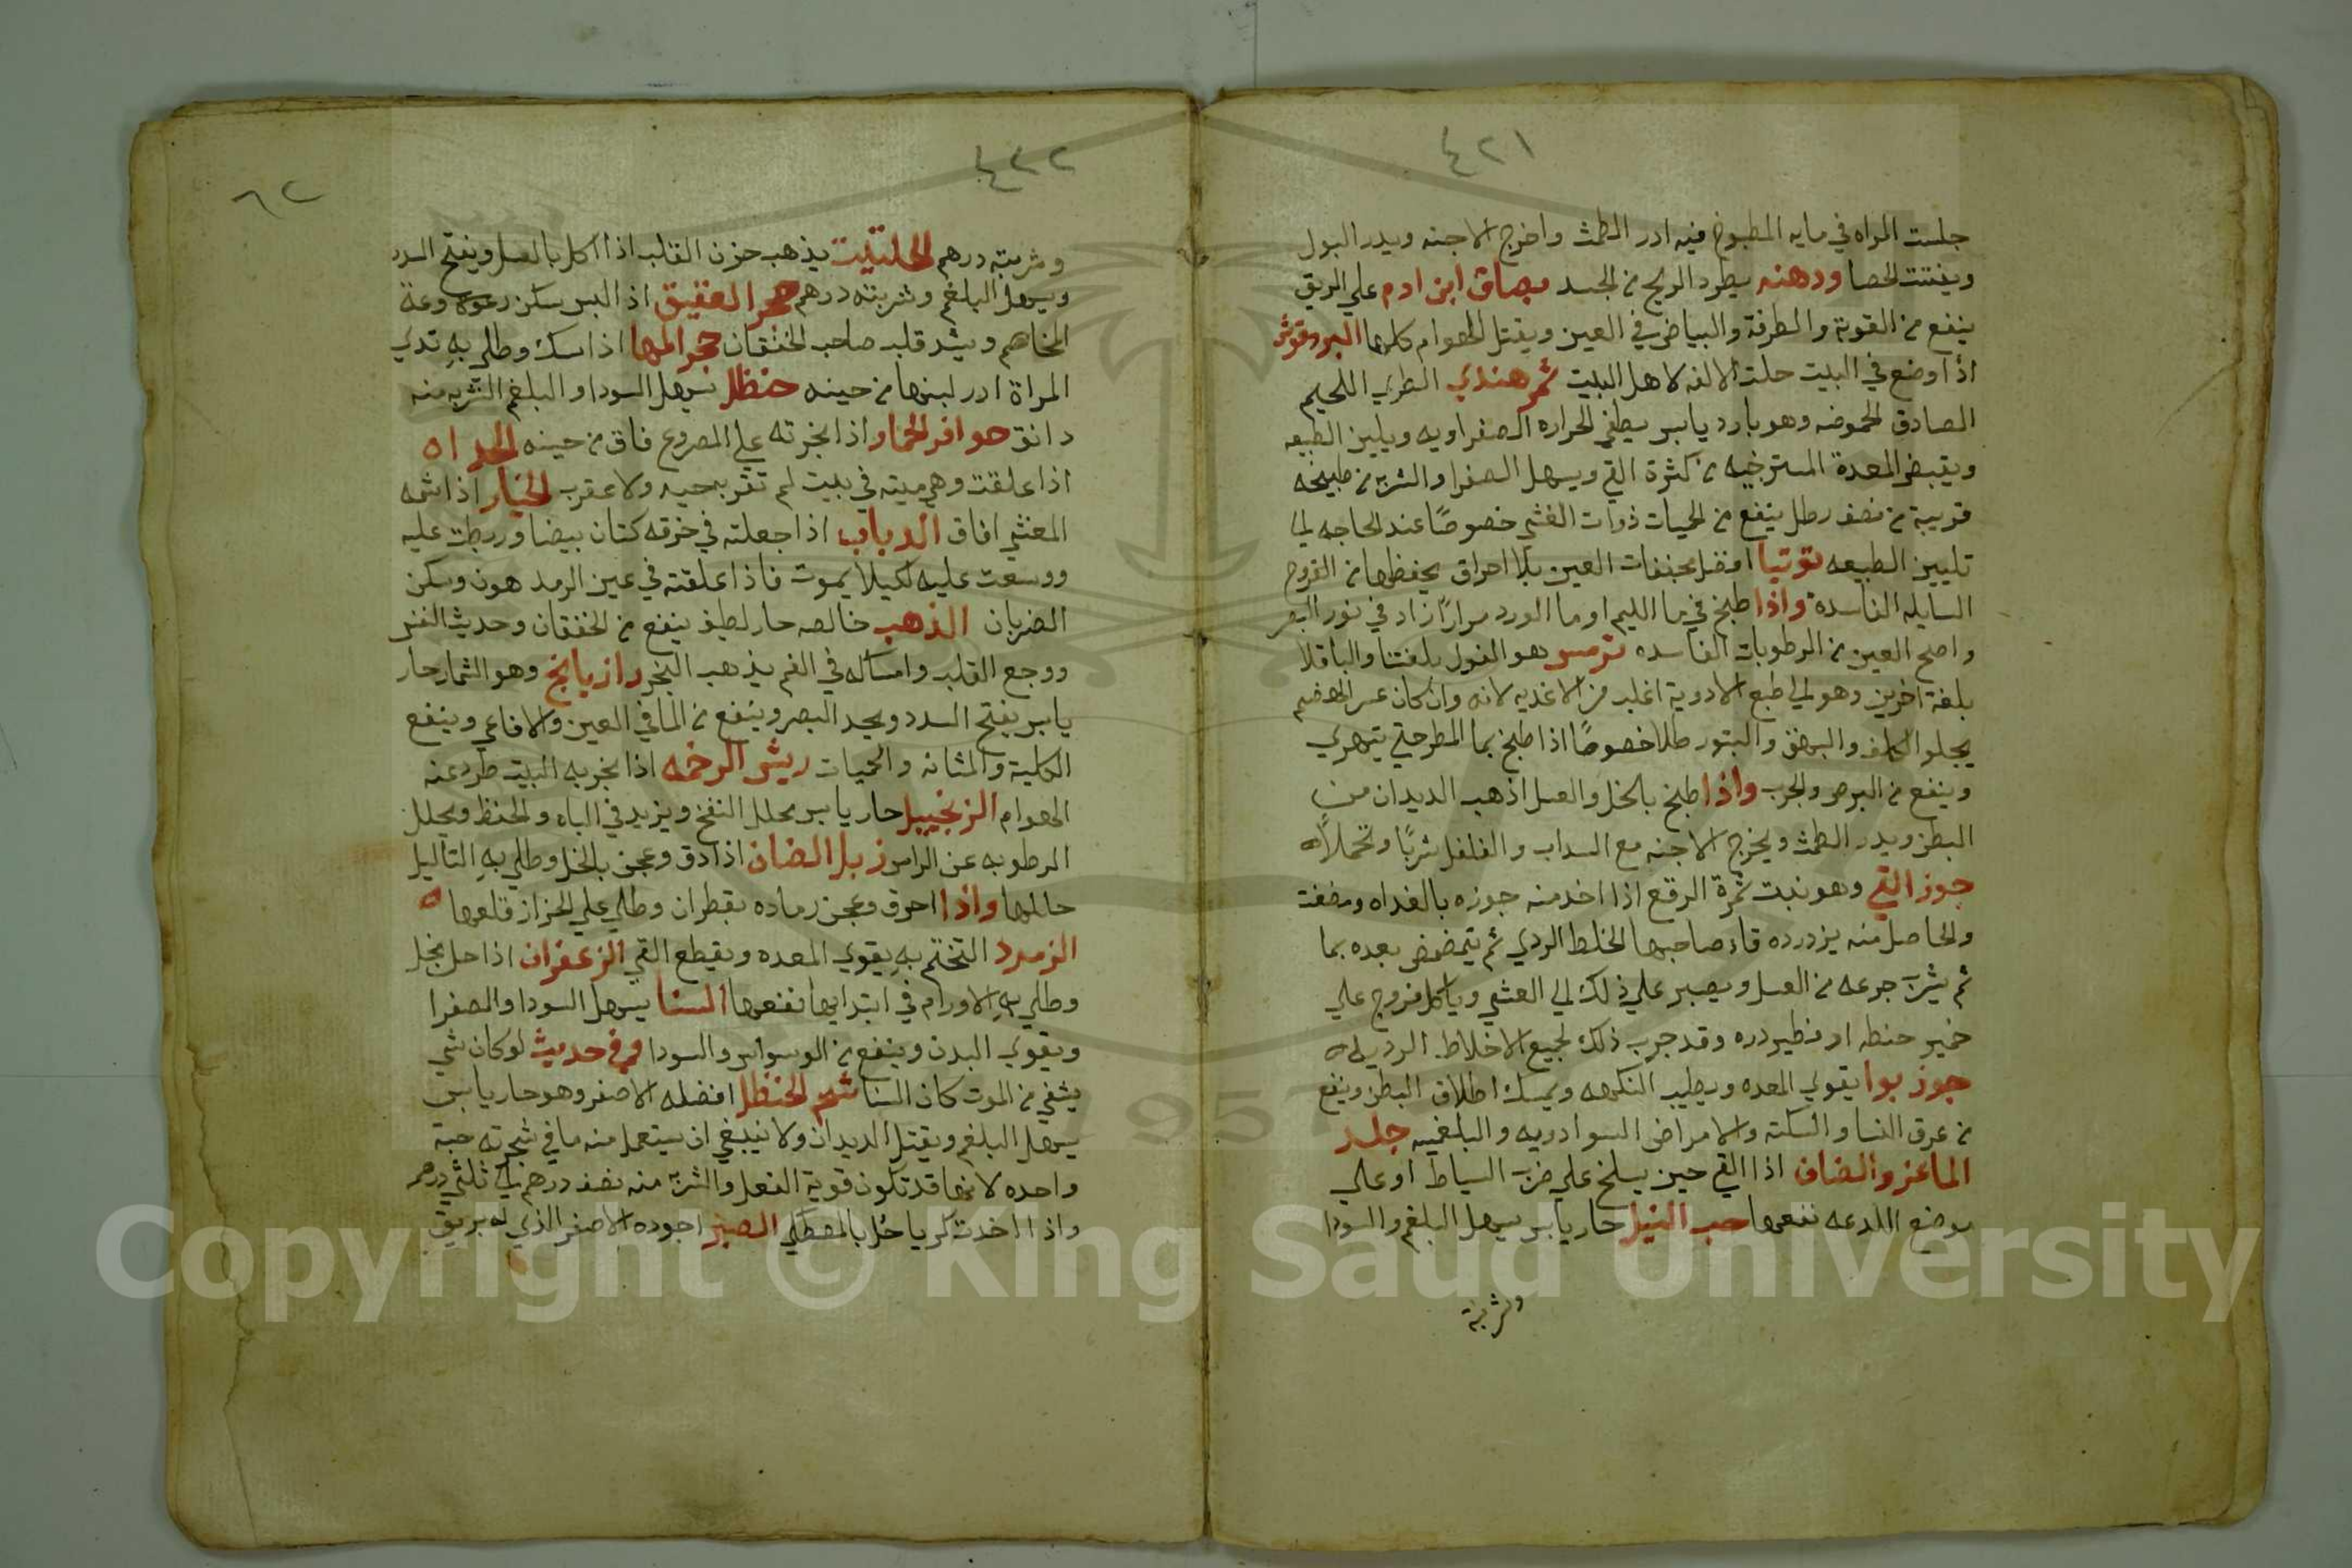 ٤٢١
جلست المراه في مايه المطبوخ فيه ادر الطمث واخرج الاجنه ويدر البول
ويفتت الحصا ودهنه يطرد الريح من الجسد بصاق ابن ادم علي الريق
ينفع من القوبة والطرفة والبياض في العين ويقتل الهوام كلها البردقوش
اذا وضع في البيت حلت الالفه لاهل البيت ثمر هندي الطري اللحيم
الصادق الحموضه وهو بارد يابس يطفي الحراره الصفراويه ويلين الطبيعه
ويقبض المعدة المسترخيه من كثرة القي ويسهل الصفرا والشربة من طبيخه
قريبة من نصف رطل ينفع من الحيات ذوات الغشي خصوصًا عند الحاجه الي
تليين الطبيعه توتيا افضل مجففات العين بلا احراق يحفظها من القروح
السايله الفاسدة واذا طبخ في ما الليم او ما الورد مرارًا زاد في نور البصر
واصلح العين من الرطوبات الفاسده ترمس هو الفول بلغتنا والباقلا
بلغة اخرين وهو الي طبع الادوية اغلب من الاغديه لانه وان كان عسر الهضم
يجلوا الكلف والبهق والبثور طلا خصوصًا اذا طبخ بما المطر حتي يتهري
وينفع من البرص والجرب واذا طبخ بالخل والعسل اذهب الديدان من
البطن ويدر الطمث ويخرج الاجنه مع السداب والفلفل شربًا وتحملاً ه
جوز القي وهو نبت ثمرة الرقع اذا اخد منه جوزه بالغداه ومضغت
والحاصل منه يزدرده قاء صاحبها الخلط الردي ثم يتمضمض بعده بما
ثم يشرب جرعه من العسل ويصبر علي ذلك الي العشي وياكل فروج علي
خمير حنطه او فطير دره وقد جرب ذلك لجميع الاخلاط الرديه ه
جوز بوا يقوي المعده ويطيب النكهه ويمسك اطلاق البطن وينفع
من عرق النسا والسكتة والامراض السوادويه والبلغميه جلد
الماعز والضان اذا القي حين يسلخ علي ضرب السياط او علي
موضع اللدعه نفعها حب النيل حار يابس يسهل البلغم والسودا
وشربته
٤٢٢
٦٢
وشربته درهم الحلتيت يذهب حزن القلب اذا اكل بالعسل ويفتح السدد
ويسهل البلغم وشربته درهم حجر العقيق اذ البس سكن روعة وعة
المخاهم ويشد قلب صاحب الخفقان حجر المها اذا سك وطلي به تدي
المراة ادر لبنها من حينه حنظل يسهل السودا والبلغم الشربه منه
دانق حوافر الحمار اذا بخرته علي المصروع فاق من حينه الحداه
اذا علقت وهي ميته في بيت لم تقربه حيه ولا عقرب الخيار اذا شمه
المغشي افاق الدباب اذا جعلته في خرقه كتان بيضا وربطت عليه
ووسعت عليه لكيلا يموت فاذا علقته في عين الرمد هون وسكن
الضربان الذهب خالصه حار لطيف ينفع من الخفقان وحديث النفس
ووجع القلب وامساكه في الفم يذهب البخر رازيانج وهو الشمار حار
يابس يفتح السدد ويحد البصر وينفع من الما في العين والافاعي وينفع
الكلية والمثانه والحميات ريش الرخمه اذا بخر به البيت طرد عنه
الهوام الزنجبيل حار يابس يحلل النفخ ويزيد في الباه والحفظ ويحلل
الرطوبه عن الراس زبل الضان اذا دق وعجن بالخل وطلي به التاليل
حاللها واذا احرق وعجن رماده بقطران وطلي علي الحزاز قلعها ه
الزمرد التختم به يقوي المعده ويقطع القي الزعفران اذا حل بخل
وطلي به الاورام في ابتدايها نفعها السنا يسهل السودا والصفرا
ويقوي البدن وينفع من الوسواس والسودا وفي حديث لو كان شي
يشفي من الموت كان السنا شحم الحنظل افضله الاصفر وهو حار يابس
يسهل البلغم ويقتل الديدان ولا ينبغي ان يستعمل منه ما في شجرته حبة
واحده لانها قد تكون قوية الفعل والشربة منه نصف درهم الي ثلثي درهم
واذا اخدت كرياحل بالمصطكي الصبر اجوده الاصفر الذي له بريق
Copyright © King Saud University
1957